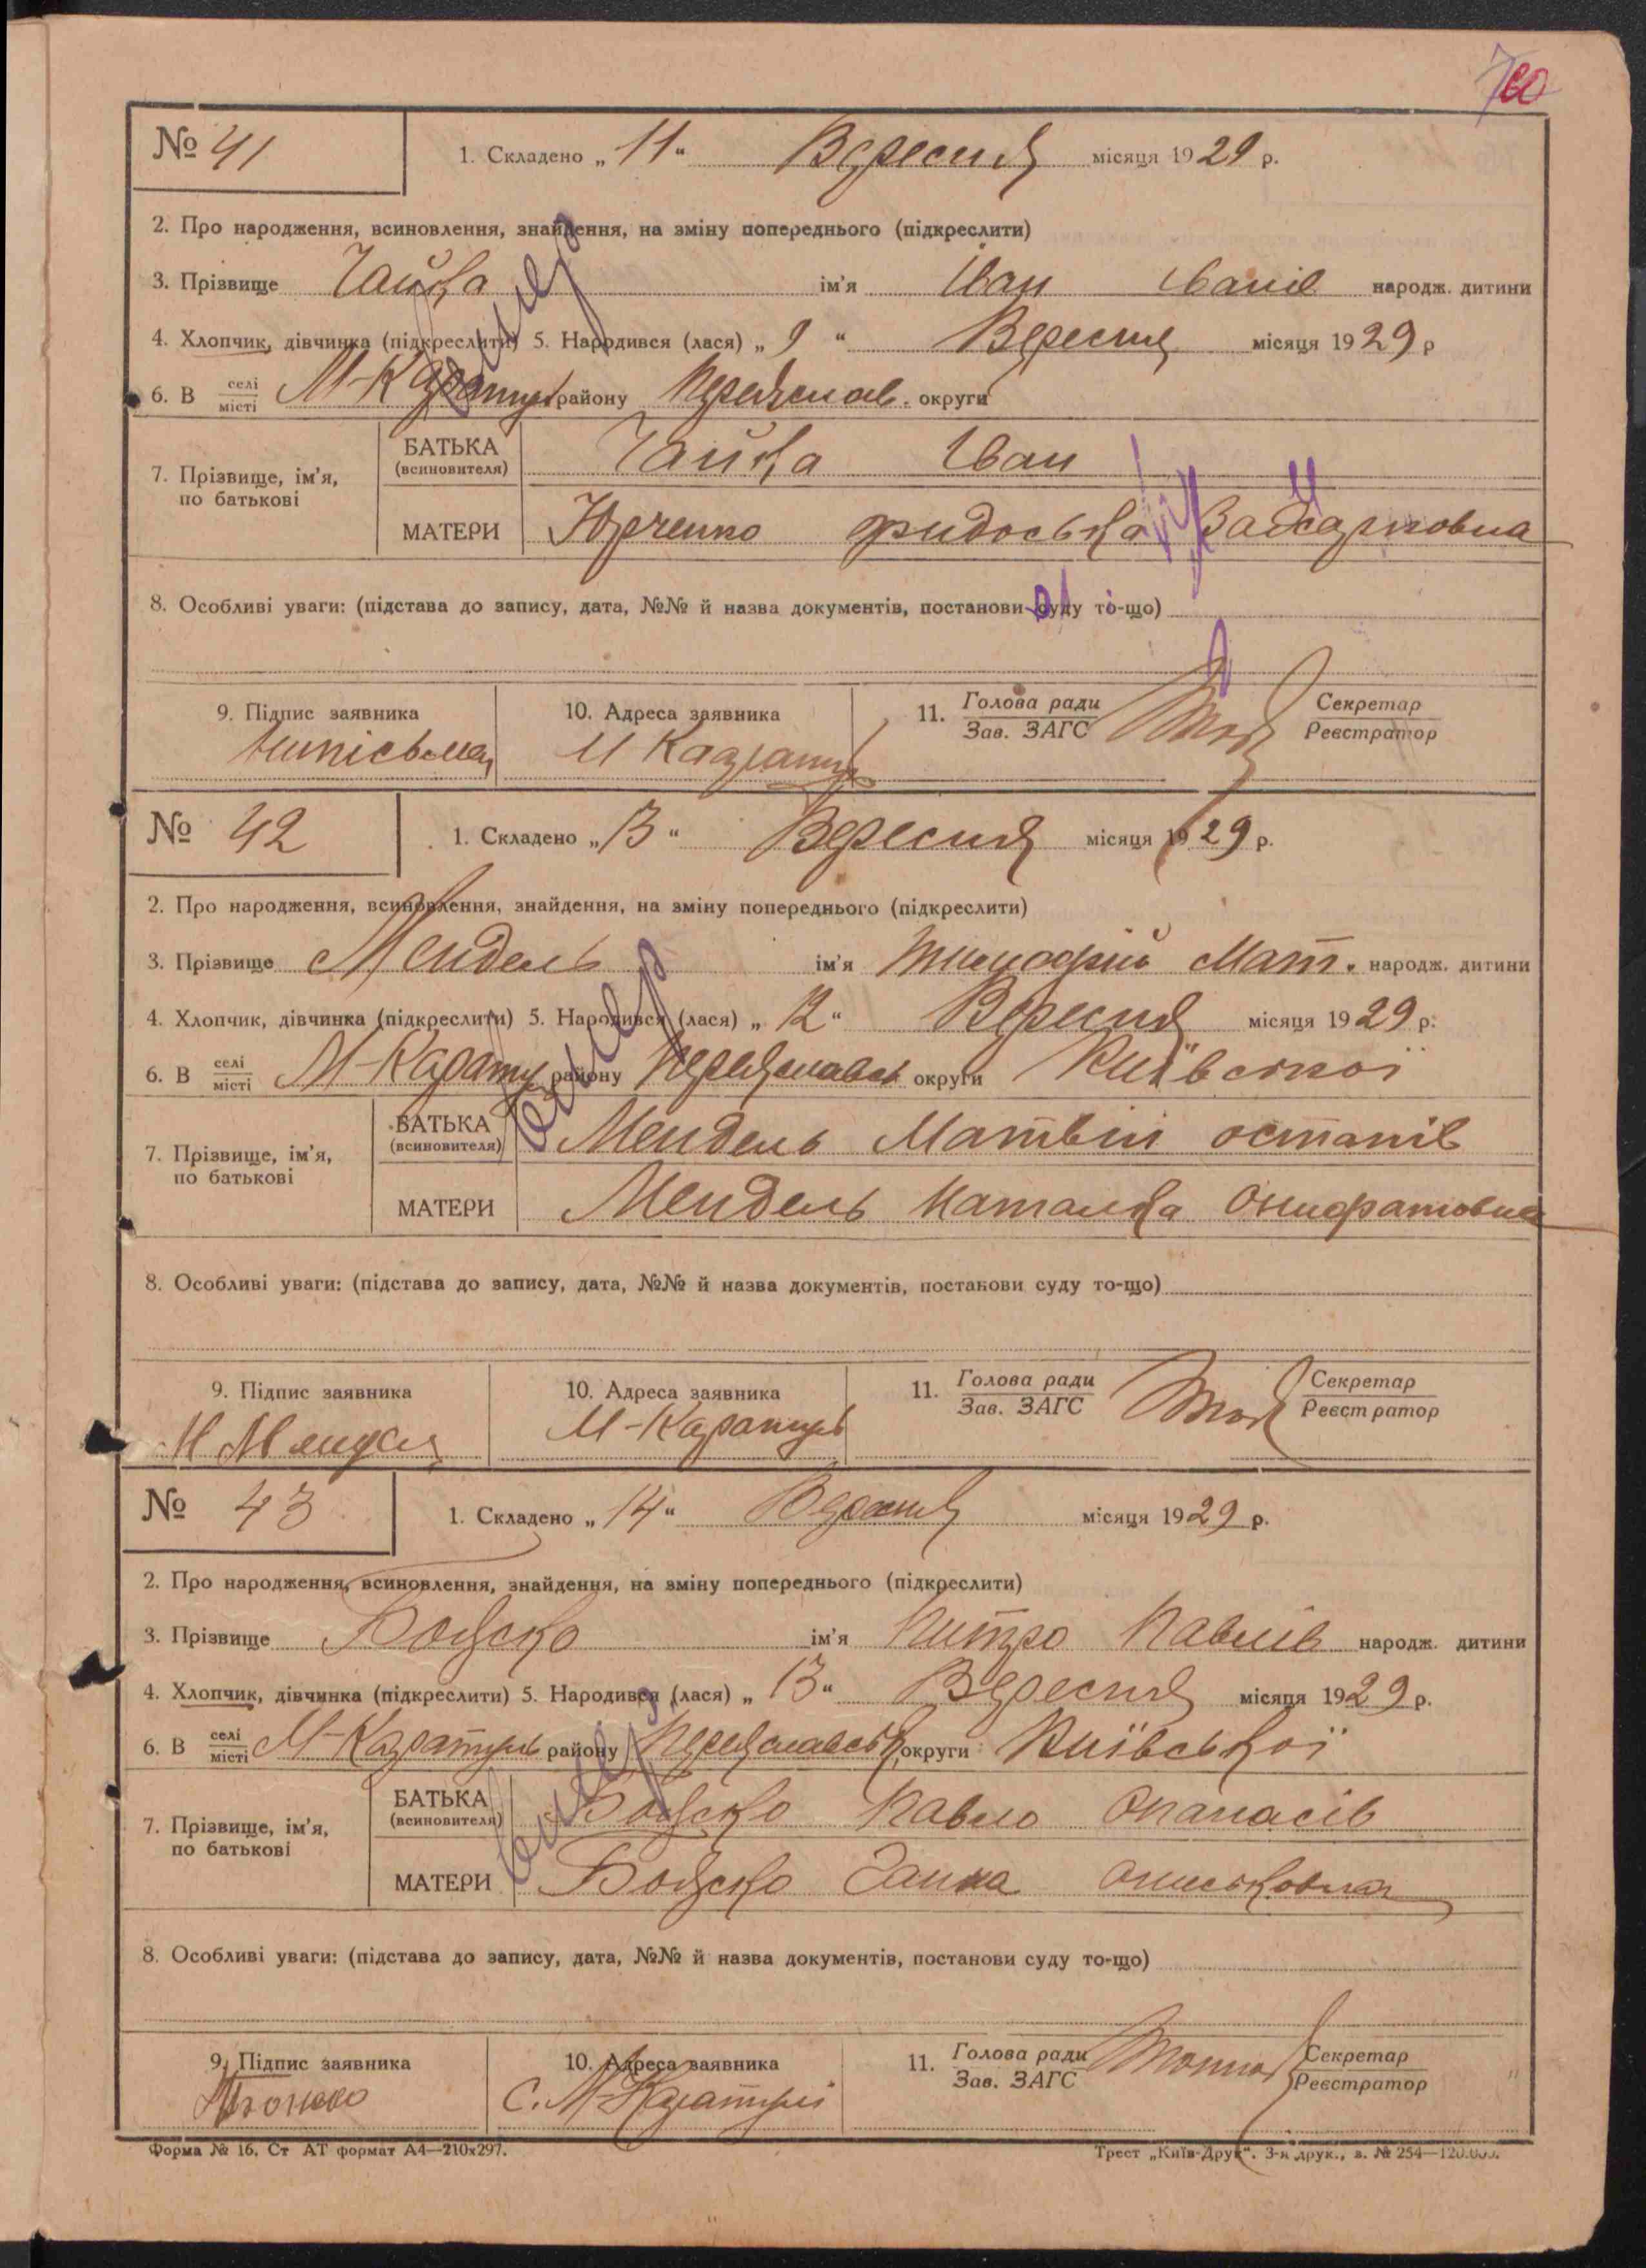 № 41
1. Складено „ 11 “ Вересня місяця 1929 р.
2. Про народження, всиновлення, знайдення, на зміну попереднього (підкреслити)
3. Прізвище Чайка ім’я Іван Іванів народж. дитини
4. Хлопчик, дівчинка (підкреслити) 5. Народився (лася) „ 9 “ Вересня місяця 1929 р
6. В селі місті М-Каратул району Переяслав. округи
7. Прізвище, ім’я, по батькові
БАТЬКА (всиновителя) Чайка Іван
МАТЕРИ Юрченко
8. Особливі уваги: (підстава до запису, дата, №№ й назва документів, постанови суду то-що)
9. Підпис заявника 10. Адреса заявника 11. Голова ради Зав. ЗАГС Секретар Реєстратор
М Каратул
№ 42
1. Складено „ 13 “ Вересня місяця 1929 р.
2. Про народження, всиновлення, знайдення, на зміну попереднього (підкреслити)
3. Прізвище Мендель ім’я Мат. народж. дитини
4. Хлопчик, дівчинка (підкреслити) 5. Народився (лася) „ 12 “ Вересня місяця 1929 р.
6. В селі місті М-Каратул району Переяславск округи Київскої
7. Прізвище, ім’я, по батькові
БАТЬКА (всиновителя) Мендель Матвій остапів
МАТЕРИ Мендель Наталка
8. Особливі уваги: (підстава до запису, дата, №№ й назва документів, постанови суду то-що)
9. Підпис заявника 10. Адреса заявника 11. Голова ради Зав. ЗАГС Секретар Реєстратор
М Мендел М-Каратуль
№ 43
1. Складено „ 14 “ Вересня місяця 1929 р.
2. Про народження, всиновлення, знайдення, на зміну попереднього (підкреслити)
3. Прізвище Бояско ім’я Павлів народж. дитини
4. Хлопчик, дівчинка (підкреслити) 5. Народився (лася) „ 13 “ Вересня місяця 1929 р.
6. В селі місті М-Каратуль району Переяславськ округи Київської
7. Прізвище, ім’я, по батькові
БАТЬКА (всиновителя) Бояско Павло Опанасів
МАТЕРИ Бояско Ганна
8. Особливі уваги: (підстава до запису, дата, №№ й назва документів, постанови суду то-що)
9. Підпис заявника 10. Адреса заявника 11. Голова ради Зав. ЗАГС Секретар Реєстратор
С. М-Каратулі
Форма № 16. Ст АТ формат А4—210х297. Трест „Київ-Друк“. 3-я друк., з. № 254—120.000.